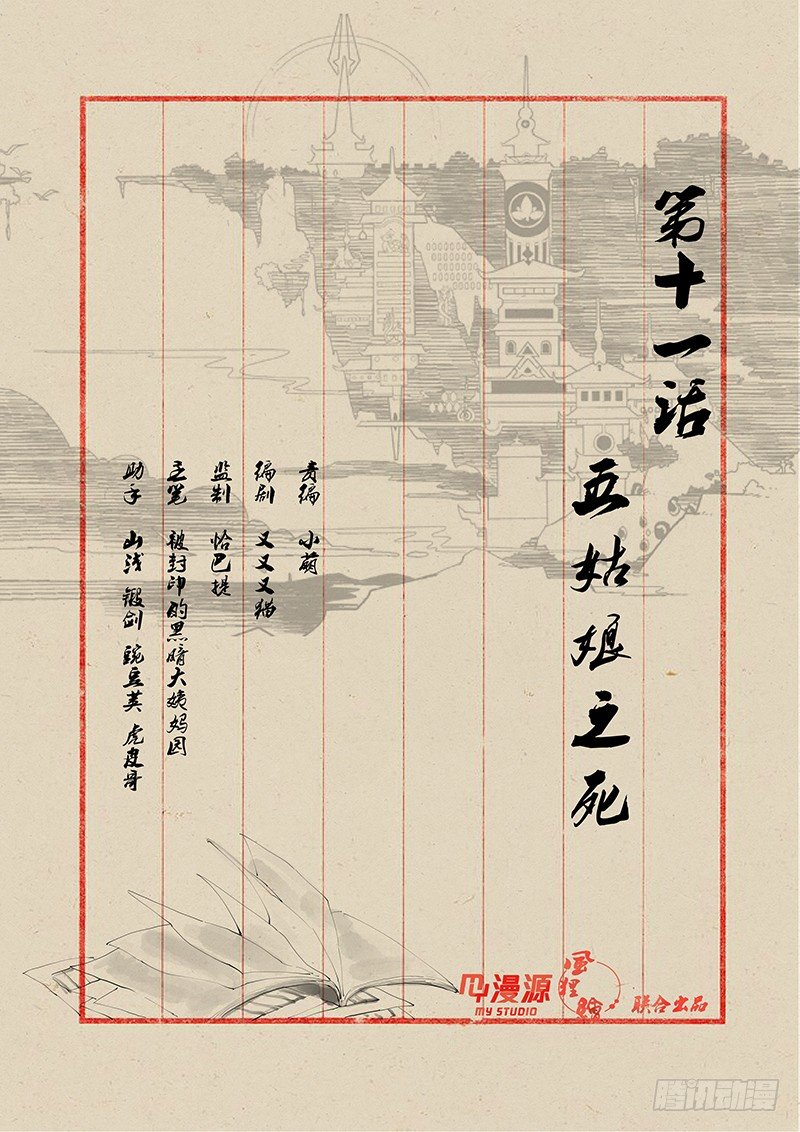 第十一话
五姑娘之死
责编 小萌
编剧 又又又猫
监制 恰巴提
主笔 被封印的黑暗大姨妈园
助手 山浅 锻剑 豌豆荚 虎皮哥
漫源
MY STUDIO
風狸
联合出品
腾讯动漫